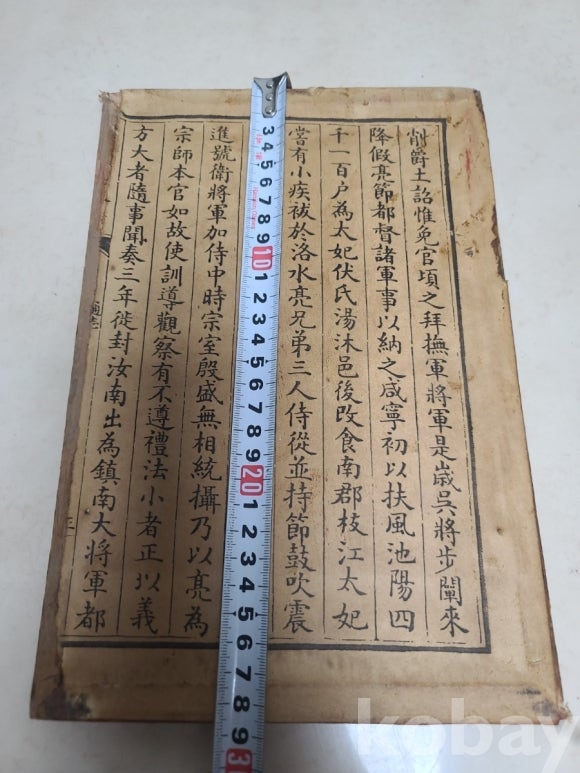 削爵土詔惟免官項之拜撫軍將軍是歲吳將步闡來
降假亮節都督諸軍事以納之咸寧初以扶風池陽四
千一百户為太妃伏氏湯沐邑後改食南郡枝江太妃
嘗有小疾祓於洛水亮兄弟三人侍從並持節鼓吹震
進號衛將軍加侍中時宗室殷盛無相統攝乃以亮為
宗師本官如故使訓導觀察有不遵禮法小者正以義
方大者隨事聞奏三年徙封汝南出為鎮南大將軍都
3 4 5 6 7 8 9 10 1 2 3 4 5 6 7 8 9 20 1 2 3 4 5 6 7 8 9 3
kobay